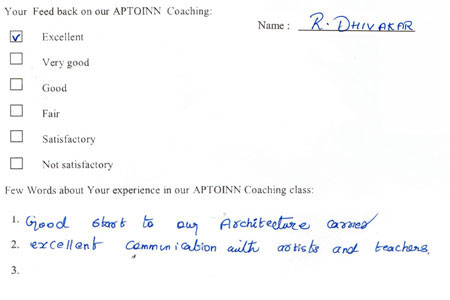 Your Feed back on our APTOINN Coaching:
Name : R. DHIVAKAR
Excellent
Very good
Good
Fair
Satisfactory
Not satisfactory
Few Words about Your experience in our APTOINN Coaching class:
1. Good start to our Architecture carrier
2. excellent communication with artists and teachers.
3.